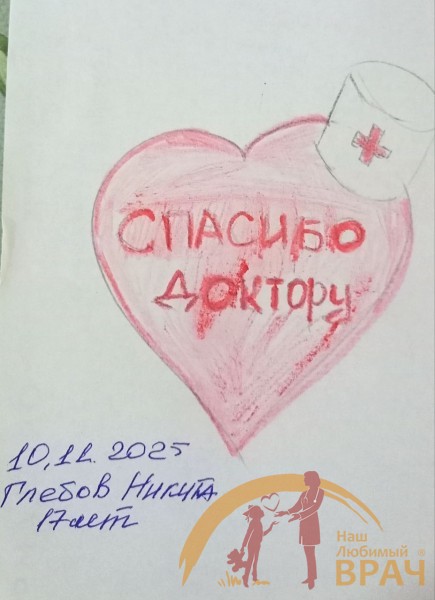 СПАСИБО
ДОКТОРУ
10.12.2025
Глебов Никита
17 лет
Наш
Любимый
ВРАЧ